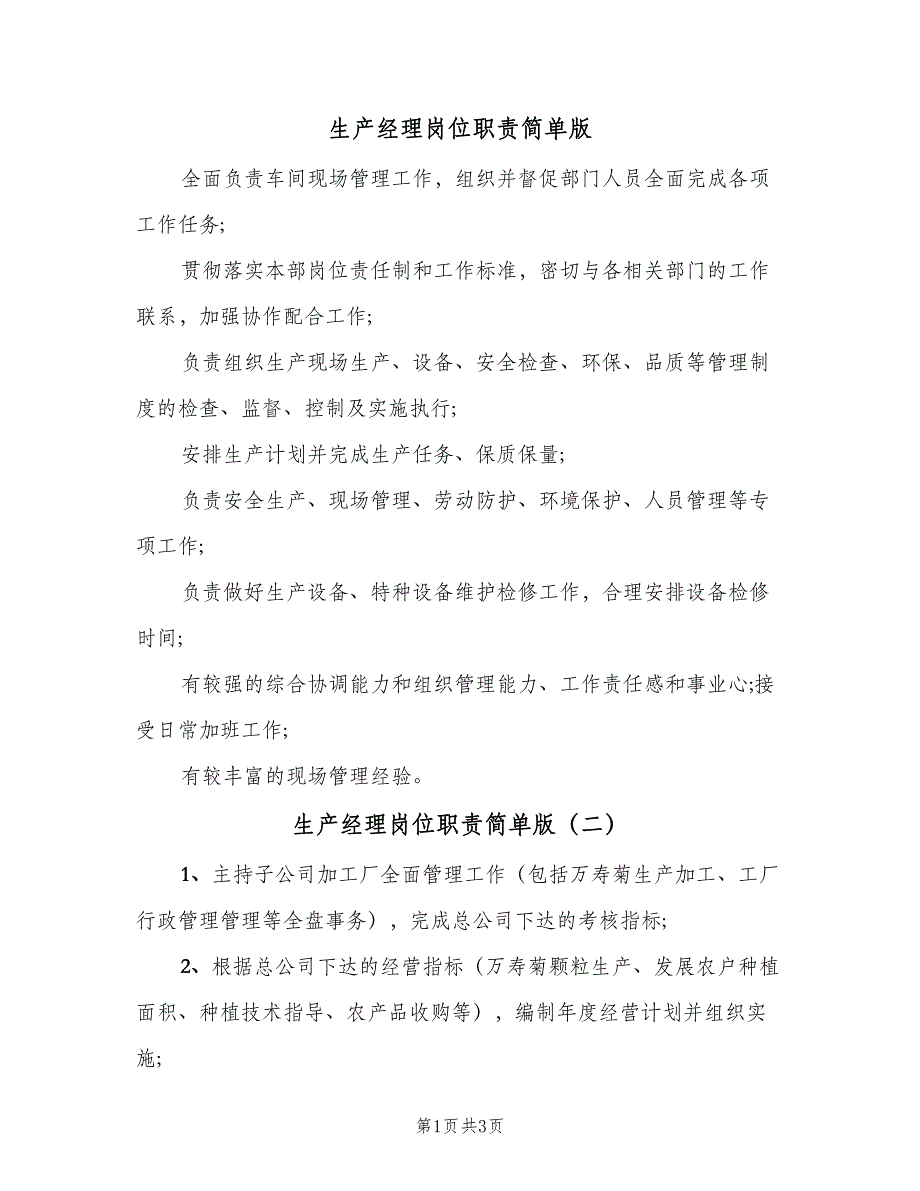 生产经理岗位职责简单版
全面负责车间现场管理工作，组织并督促部门人员全面完成各项
工作任务;
贯彻落实本部岗位责任制和工作标准，密切与各相关部门的工作
联系，加强协作配合工作;
负责组织生产现场生产、设备、安全检查、环保、品质等管理制
度的检查、监督、控制及实施执行;
安排生产计划并完成生产任务、保质保量;
负责安全生产、现场管理、劳动防护、环境保护、人员管理等专
项工作;
负责做好生产设备、特种设备维护检修工作，合理安排设备检修
时间;
有较强的综合协调能力和组织管理能力、工作责任感和事业心;接
受日常加班工作;
有较丰富的现场管理经验。
生产经理岗位职责简单版（二）
1、主持子公司加工厂全面管理工作（包括万寿菊生产加工、工厂
行政管理管理等全盘事务），完成总公司下达的考核指标;
2、根据总公司下达的经营指标（万寿菊颗粒生产、发展农户种植
面积、种植技术指导、农产品收购等），编制年度经营计划并组织实
施;
第1页共3页